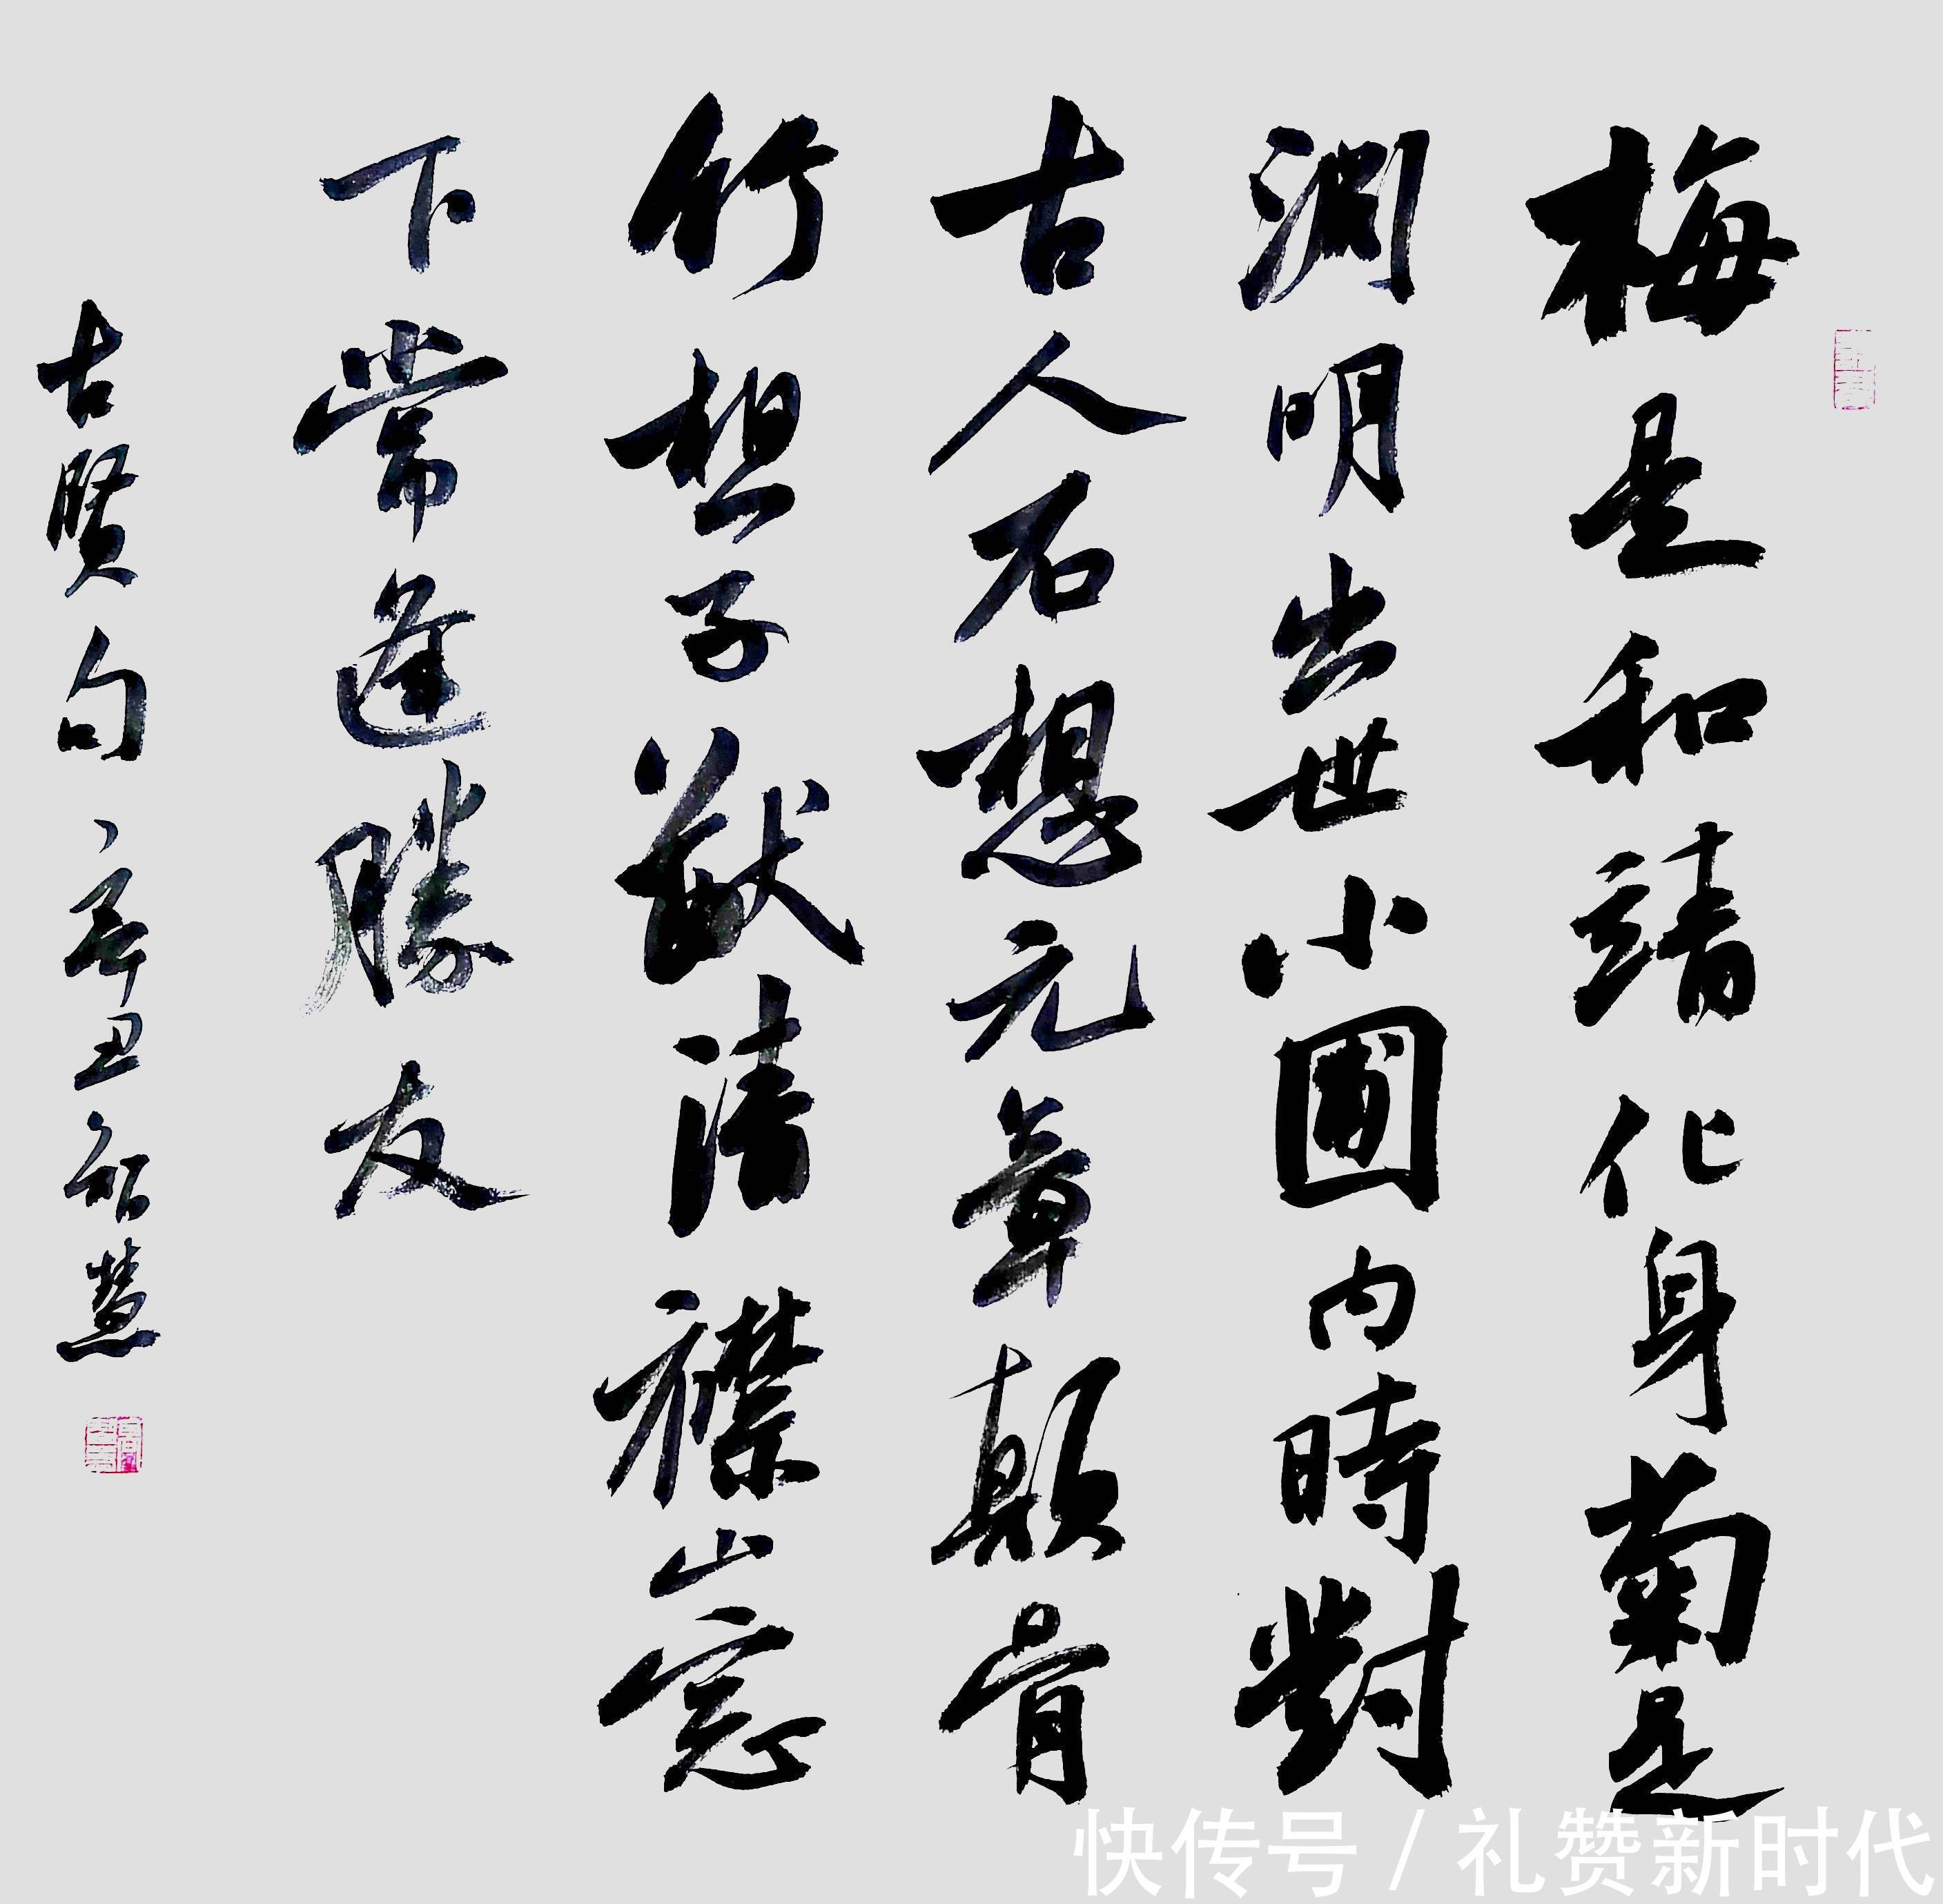 梅是和靖化身菊是
淵明出世小圃内時對
古人石想元章顛骨
竹想子猷清襟山窓
下常逢勝友
古賢句 辛丑 慧
快传号 / 礼赞新时代